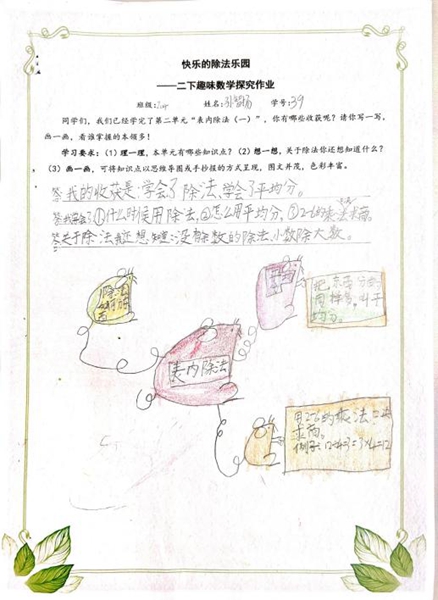 快乐的除法乐园
——二下趣味数学探究作业
班级： 姓名： 学号：39
同学们，我们已经学完了第二单元“表内除法（一）”，你有哪些收获呢？请你写一写，
画一画，看谁掌握的本领多！
学习要求：（1）理一理，本单元有哪些知识点？（2）想一想，关于除法你还想知道什么？
（3）画一画，可将知识点以思维导图或手抄报的方式呈现，图文并茂，色彩丰富。
答：我的收获是：学会了除法、学会了平均分。
①什么时候用除法，②怎么用平均分，③2-6的乘法 求商。
答：关于除法我还想知道：没有余数的除法、小数除大数。
除法
平均分
把东西分的
同样多，叫平
均分。
表内除法
用2-6的乘法口诀
求商。
例子：12÷3= 3×4=12